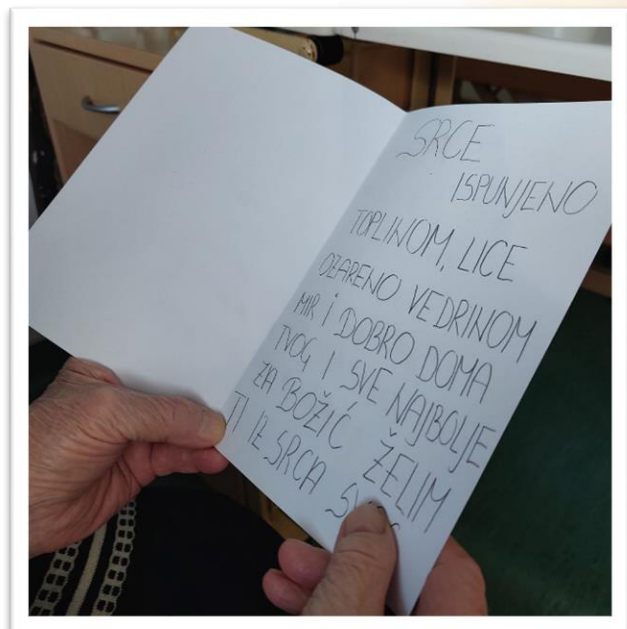 SRCE
ISPUNJENO
TOPLINOM, LICE
OZARENO VEDRINOM
MIR i DOBRO DOMA
TVOG I SVE NAJBOLJE
ZA BOŽIĆ ŽELIM
TI IZ SRCA